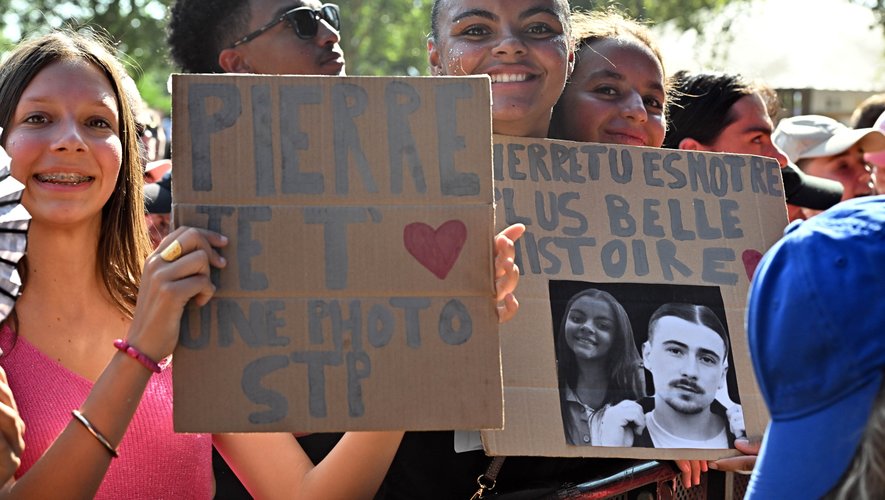 PIERRE
TE T'
UNE PHOTO
STP
PIERRE TU ES NOTRE
PLUS BELLE
HISTOIRE